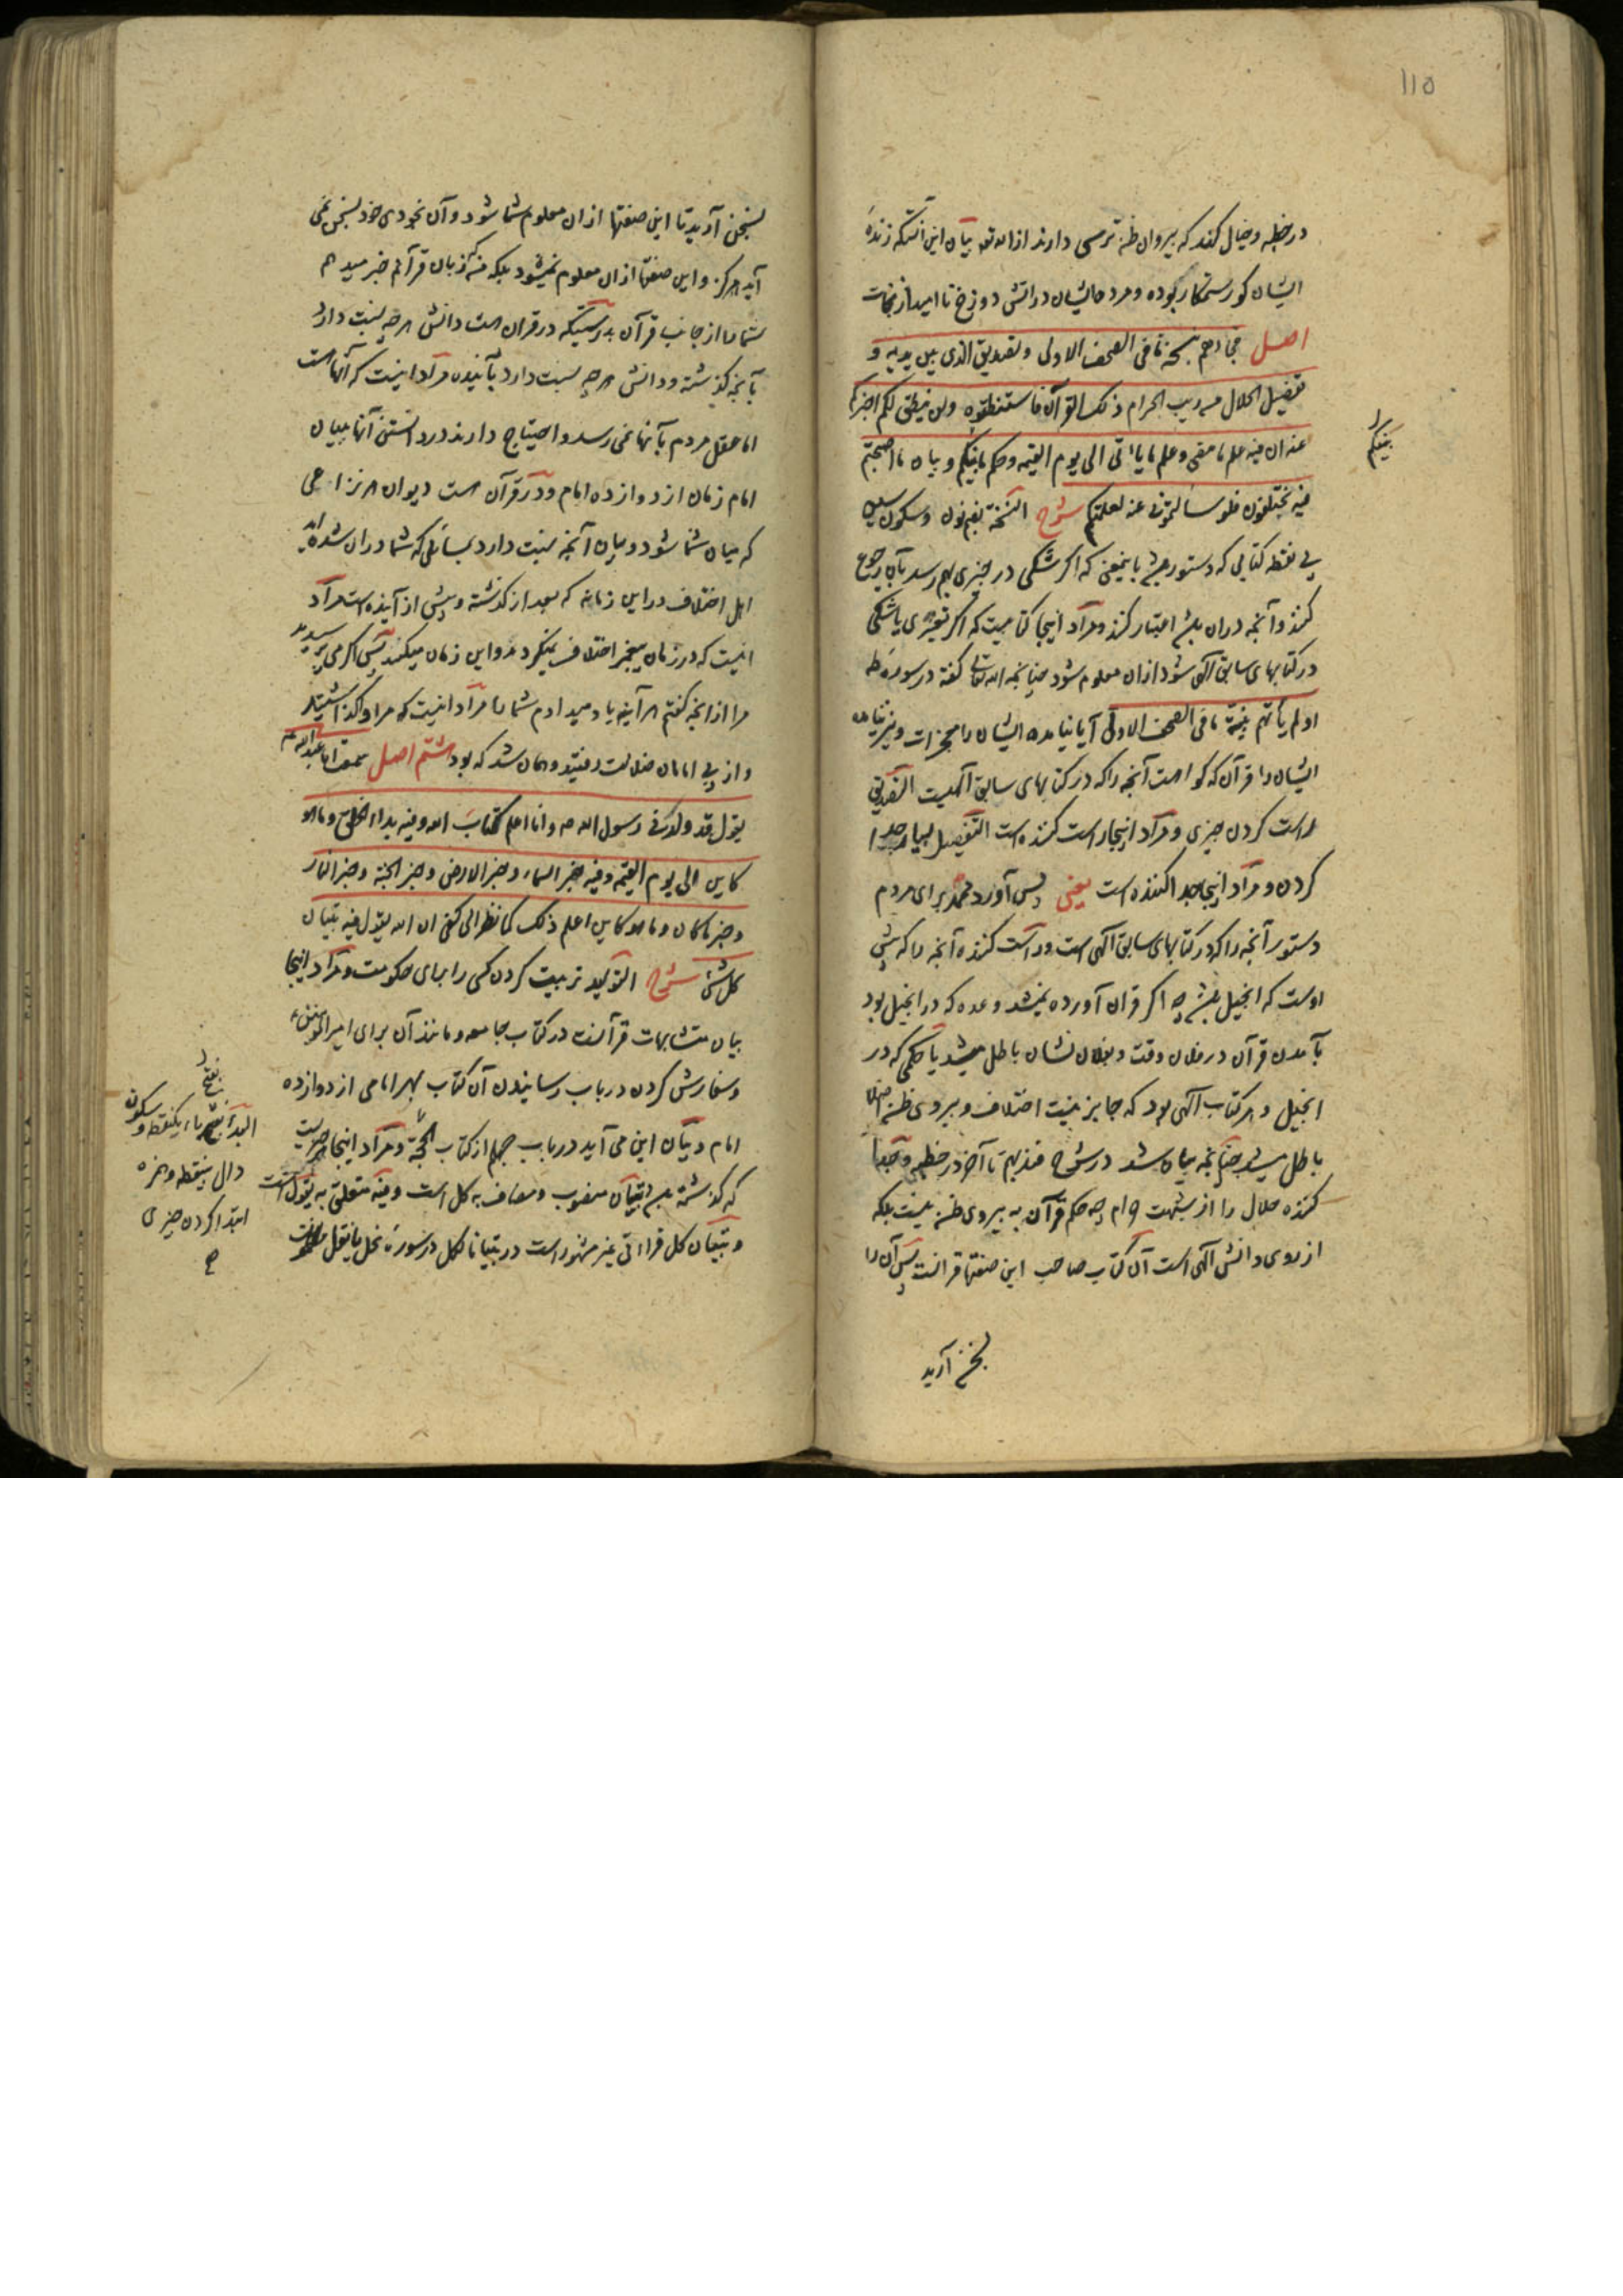 ١١٥
در خطبه و خیال کند که پیروان ظن ترسی دارند از الله تعـ بیان این آنستکه زنده
ایشان کور ستمکار بوده و مرده ایشان در آتش دوزخ ناامید از نجات
اصل فجاءهم بنسخة ما فی الصحف الاولی و تصدیق الذی بین یدیه و
تفصیل الحلال من ریب الحرام ذلک القرآن فاستنطقوه ولن ینطق لکم اخبرکم
عنه ان فیه علم ما مضی و علم ما یاتی الی یوم القیمه و حکم ما بینکم و بیان ما اصبحتم
بینکم
فیه تختلفون فلو سألتمونی عنه لعلمتکم شرح النسخة بضم نون و سکون سین
بی نقطه کتابی که دستور باشد باینمعنی که اگر شکی در چیزی بهم رسد بآن رجوع
کنند و آنچه در آن باشد اعتبار کنند و مراد اینجا کتابیست که اگر تغییری یا شکی
در کتابهای سابق الهی شود از آن معلوم شود چنانچه الله تعالی گفته در سورهٔ طه
اولم یاتهم بینة ما فی الصحف الاولی آیا نیامده ایشان را معجزات و نیز نیامده
ایشان را قرآن که گواهست آنچه را که در کتابهای سابق الهیست التصدیق
راست کردن چیزی و مراد اینجا راست کننده است التفصیل بسیار جدا
کردن و مراد اینجا جدا کننده است یعنی پس آورد محمد برای مردم
دستور آنچه را که در کتابهای سابق الهی است و راست کننده آنچه را که پیش
اوست که انجیل باشد چه اگر قرآن آورده نمیشد وعده که در انجیل بود
بآمدن قرآن در فلان وقت و بفلان نشان باطل میشد یا حکمی که در
انجیل و هر کتاب الهی بود که جایز نیست اختلاف و پیروی ظن اصلا
باطل میشد چنانچه بیان شد در شرح فندبهم تا آخر در خطبه و جدا
کننده حلال را از شبهت حرام چه حکم قرآن به پیروی ظن نیست بلکه
از روی دانش الهی است آن کتاب صاحب این صفتها قرآنست پس آن را
بسخن آرید
بسخن آرید تا این صفتها از آن معلوم شما شود و آن بخودی خود بسخن نمی
آید هرگز و این صفتها از آن معلوم نمیشود بلکه منکه زبان قرآنم خبر میدهم
شما را از جانب قرآن بدرستیکه در قرآن است دانش هر چه نسبت دارد
بآنچه گذشته و دانش هر چه نسبت دارد بآینده مراد اینست که آنهاست
اما عقل مردم بآنها نمی رسد و احتیاج دارند در دانستن آنها ببیان
امام زمان از دوازده امام و در قرآن است دیوان هر نزاعی
که میان شما شود و بیان آنچه نسبت دارد بمسائلی که شما در آن شده اید
اهل اختلاف در این زمانه که بعد از گذشته و پیش از آینده است مراد
اینست که در زمان پیغمبر اختلاف نمیکردند و این زمان میکنند پس اگر می پرسیدید
مرا از آنچه گفتم هر آینه یاد میدادم شما را مراد اینست که مرا واگذاشتید
و از پی امامان ضلالت رفتید و همان شد که بود هشتم اصل سمعت ابا عبدالله ع
یقول قد ولدنی رسول الله ص و انا اعلم کتاب الله و فیه بدء الخلق و ما هو
کاین الی یوم القیمه و فیه خبر السماء و خبر الارض و خبر الجنة و خبر النار
و خبر ما کان و ما هو کاین اعلم ذلک کما نظر الی کفی ان الله یقول فیه تبیان
کل شئ شرح التولید تربیت کردن کسی را برای حکومت و مراد اینجا
بیان متشابهات قرآنست در کتاب جامعه و مانند آن برای امیرالمؤمنین ع
و سفارش کردن در باب رسانیدن آن کتاب بهر امامی از دوازده
امام و بیان این می آید در باب چهلم از کتاب الحجة و مراد اینجا خبریست
که گذشته باشد تبیان منصوب و مضاف به کل است و فیه متعلق به یقول است
و تبیان کل قراءتی غیر مشهور است در تبیانا لکل در سورهٔ نحل یا نقل
بفتح
البدء باء یکنقطه و سکون
دال بینقطه و همزه
ابتدا کردن چیزی